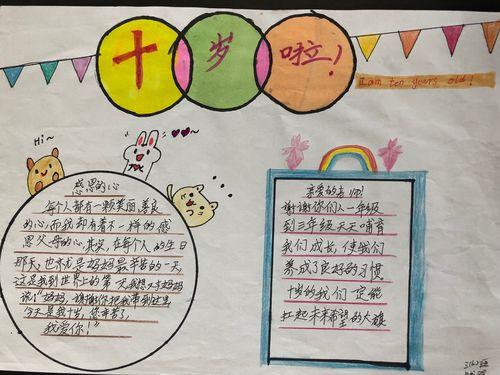 十岁啦!
I am ten years old!
Hi~
感恩的心
每个人都有一颗美丽、善良
的心,而我却有着不一样的感
恩父母的心,其实,在每个人的生日
那天,也亦是妈妈最辛苦的一天,
这是我到世界上的第一天,我想对妈妈
说:"妈妈,谢谢你把我带到这里
今天是我十岁,您辛苦了,
我爱你!"
亲爱的老师!
谢谢你们从一年级
到三年级天天哺育
我们成长,使我们
养成了良好的习惯
十岁的我们一定能
扛起未来希望的大旗